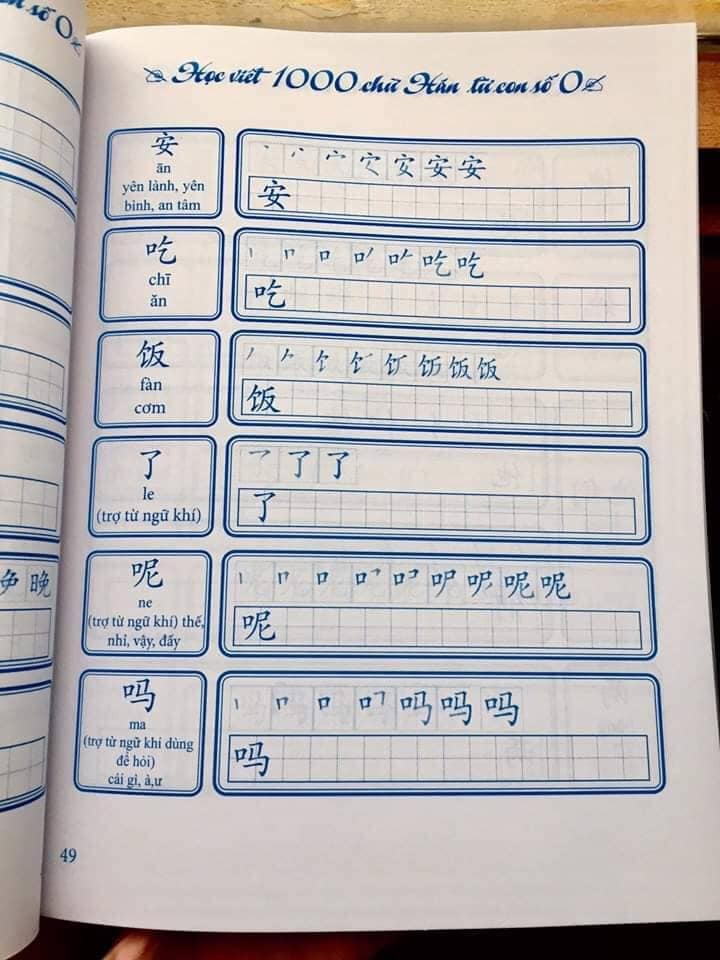 con số 0
晚
Học viết 1000 chữ Hán từ con số 0
安
ān
yên lành, yên
bình, an tâm
宀 安 安 安
安
吃
chī
ăn
吃 吃
吃
饭
fàn
cơm
饭 饭
饭
了
le
(trợ từ ngữ khí)
了 了
了
呢
ne
(trợ từ ngữ khí) thế,
nhỉ, vậy, đấy
呢 呢
呢
吗
ma
(trợ từ ngữ khí dùng
để hỏi)
cái gì, à,ư
吗 吗 吗
吗
49